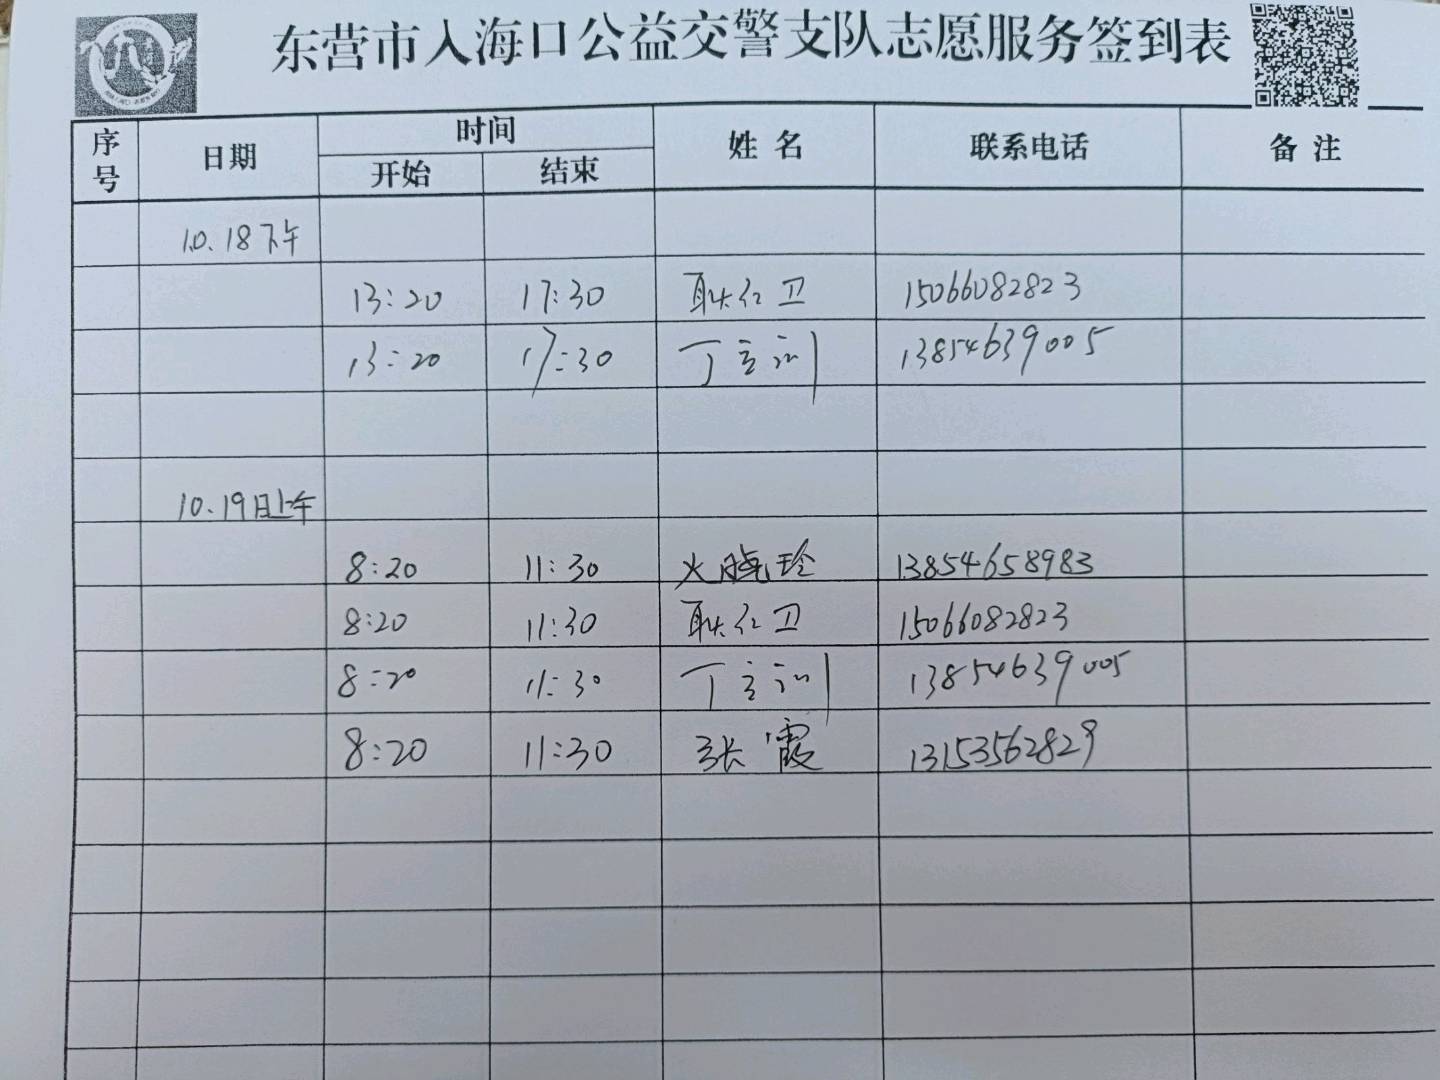 东营市入海口公益交警支队志愿服务签到表
序号 日期 时间 姓名 联系电话 备注
开始 结束
10.18下午
13:20 17:30 耿红卫 15066082823
13:20 17:30 丁立训 13854639005
10.19日上午
8:20 11:30 火晓玲 13854658983
8:20 11:30 耿红卫 15066082823
8:20 11:30 丁立训 13854639005
8:20 11:30 张霞 13153562829